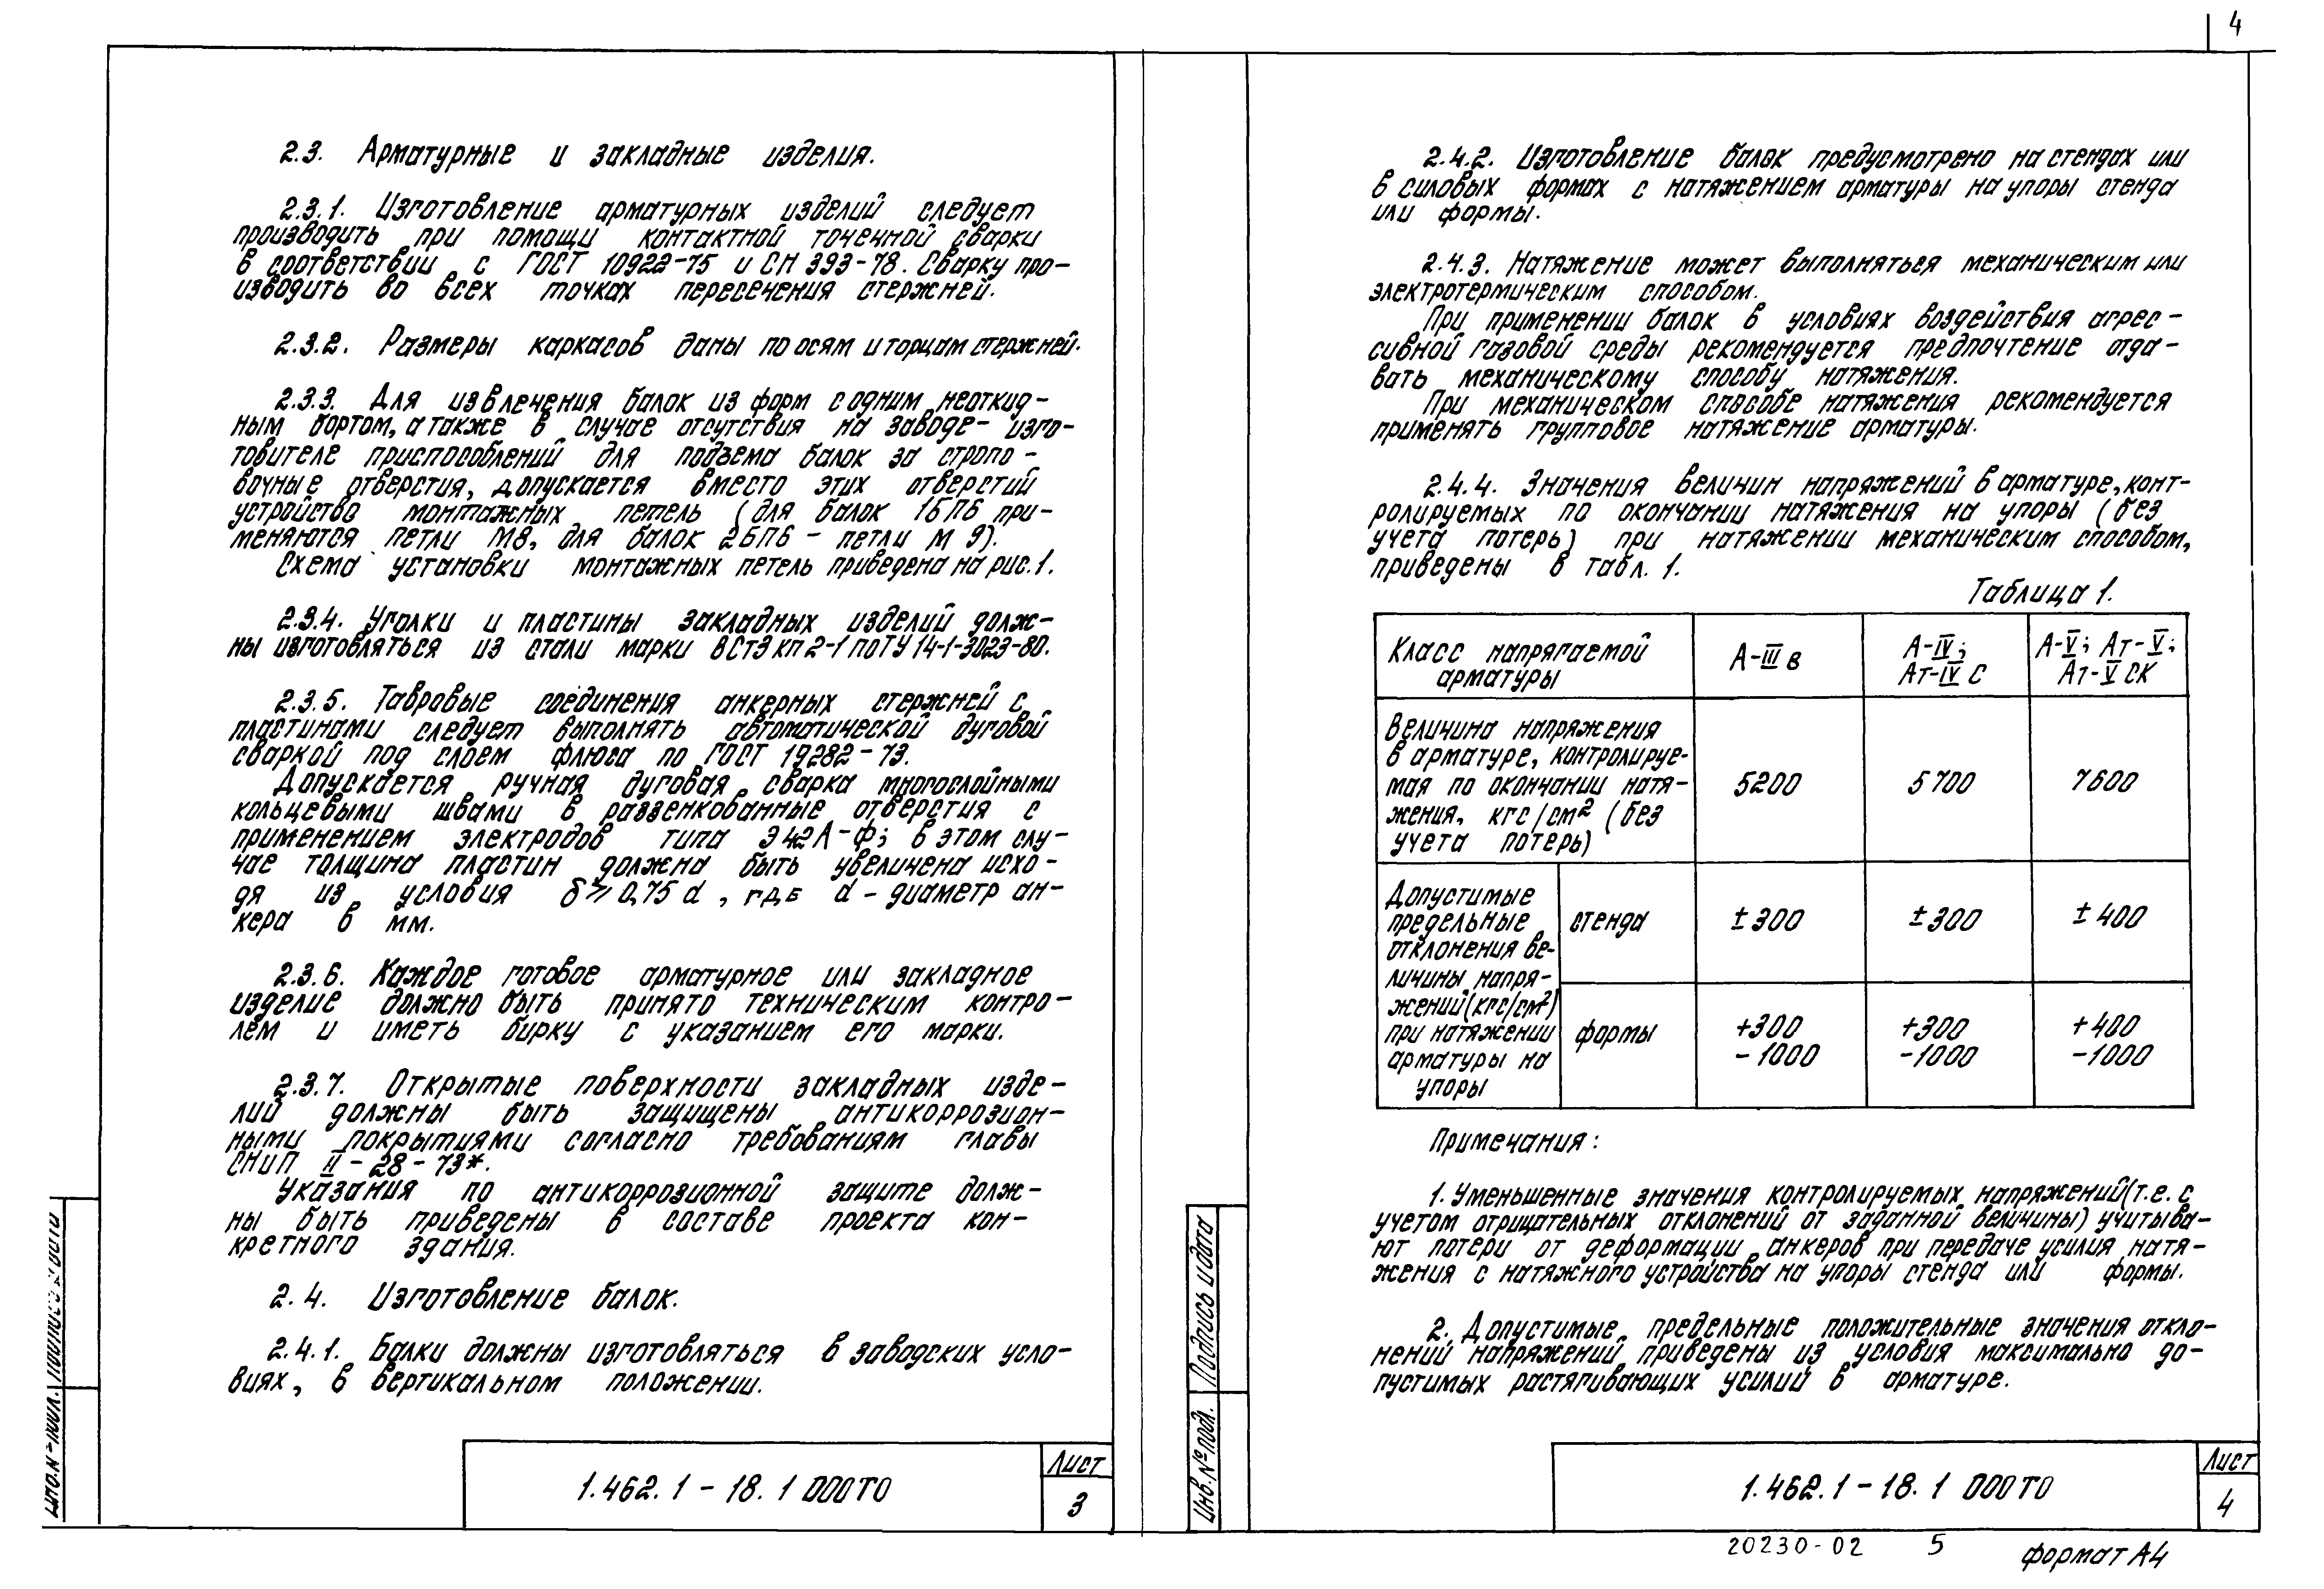 4
2.3. Арматурные и закладные изделия.
2.3.1. Изготовление арматурных изделий следует
производить при помощи контактной точечной сварки
в соответствии с ГОСТ 10922-75 и СН 393-78. Сварку про-
изводить во всех точках пересечения стержней.
2.3.2. Размеры каркасов даны по осям и торцам стержней.
2.3.3. Для извлечения балок из форм с одним неоткид-
ным бортом, а также в случае отсутствия на заводе-изго-
товителе приспособлений для подъема балок за стропо-
вочные отверстия, допускается вместо этих отверстий
устройство монтажных петель (для балок 1БП6 при-
меняются петли М8, для балок 2БП6 - петли М 9).
Схема установки монтажных петель приведена на рис. 1.
2.3.4. Уголки и пластины закладных изделий долж-
ны изготовляться из стали марки ВСт3 кп 2-1 по ТУ 14-1-3023-80.
2.3.5. Тавровые соединения анкерных стержней с
пластинами следует выполнять автоматической дуговой
сваркой под слоем флюса по ГОСТ 19282-73.
Допускается ручная дуговая сварка многослойными
кольцевыми швами в раззенкованные отверстия с
применением электродов типа Э42А-Ф; в этом слу-
чае толщина пластин должна быть увеличена исхо-
дя из условия δ ⩾ 0,75 d , где d - диаметр ан-
кера в мм.
2.3.6. Каждое готовое арматурное или закладное
изделие должно быть принято техническим контро-
лем и иметь бирку с указанием его марки.
2.3.7. Открытые поверхности закладных изде-
лий должны быть защищены антикоррозион-
ными покрытиями согласно требованиям главы
СНиП II-28-73*.
Указания по антикоррозионной защите долж-
ны быть приведены в составе проекта кон-
кретного здания.
2.4. Изготовление балок.
2.4.1. Балки должны изготовляться в заводских усло-
виях, в вертикальном положении.
1.462.1-18.1 000ТО
Лист
3
2.4.2. Изготовление балок предусмотрено на стендах или
в силовых формах с натяжением арматуры на упоры стенда
или формы.
2.4.3. Натяжение может выполняться механическим или
электротермическим способом.
При применении балок в условиях воздействия агрес-
сивной газовой среды рекомендуется предпочтение отда-
вать механическому способу натяжения.
При механическом способе натяжения рекомендуется
применять групповое натяжение арматуры.
2.4.4. Значения величин напряжений в арматуре, конт-
ролируемых по окончании натяжения на упоры (без
учета потерь) при натяжении механическим способом,
приведены в табл. 1.
Таблица 1.
Класс напрягаемой
арматуры
А-III в
А-IV;
Ат-IV С
А-V; Ат-V;
Ат-V СК
Величина напряжения
в арматуре, контролируе-
мая по окончании натя-
жения, кгс/см² (без
учета потерь)
5200
5700
7600
Допустимые
предельные
отклонения ве-
личины напря-
жений (кгс/см²)
при натяжении
арматуры на
упоры
стенда
±300
±300
±400
формы
+300
-1000
+300
-1000
+400
-1000
Примечания:
1. Уменьшенные значения контролируемых напряжений (т.е. с
учетом отрицательных отклонений от заданной величины) учитыва-
ют потери от деформации анкеров при передаче усилия натя-
жения с натяжного устройства на упоры стенда или формы.
2. Допустимые предельные положительные значения откло-
нений напряжений приведены из условия максимально до-
пустимых растягивающих усилий в арматуре.
Подпись и дата
Инв. № подл.
1.462.1-18.1 000ТО
Лист
4
20230-02 5
формат А4